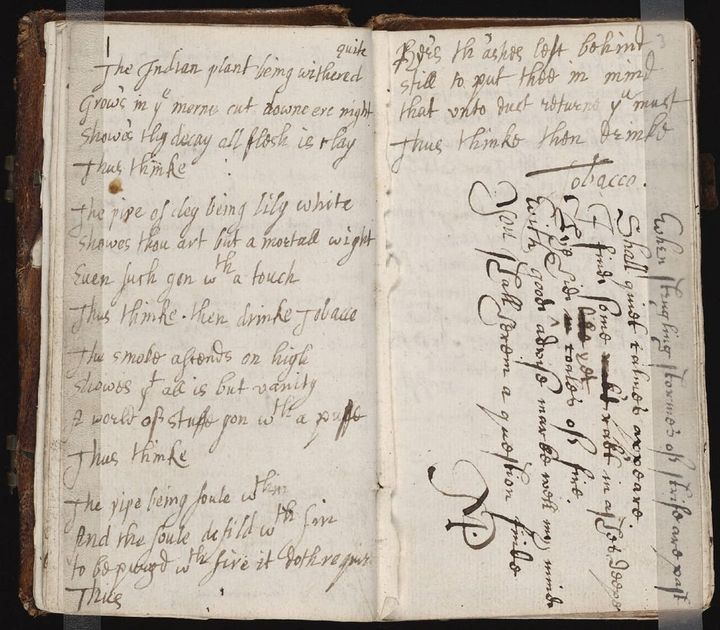 1
quite
The Indian plant being withered
Grows in yᵉ morne cut downe ere night
Showes thy decay all flesh is clay
Thus thinke
The pipe of cley being lily white
Showes thou art but a mortall wight
Even such gon wᵗʰ a touch
Thus thinke. then drinke Tobacco
The smoke assends on high
Showes yᵗ all is but vanity
A world of stuffe gon wᵗʰ a puffe
Thus thinke
The pipe being foule wᵗʰin
And the soule defild wᵗʰ sin
to be purgd wᵗʰ fire it doth requir
Thus
3
th ashes left behind
still to put thee in mind
that unto dust returne yᵘ must
Thus thinke then drinke
Tobacco.
When strugling stormes of strife are past
Shall quiet calmes appeare
I find some in deepe
hid coales of fire
With good advise marke well my minde
You shall herein a question finde